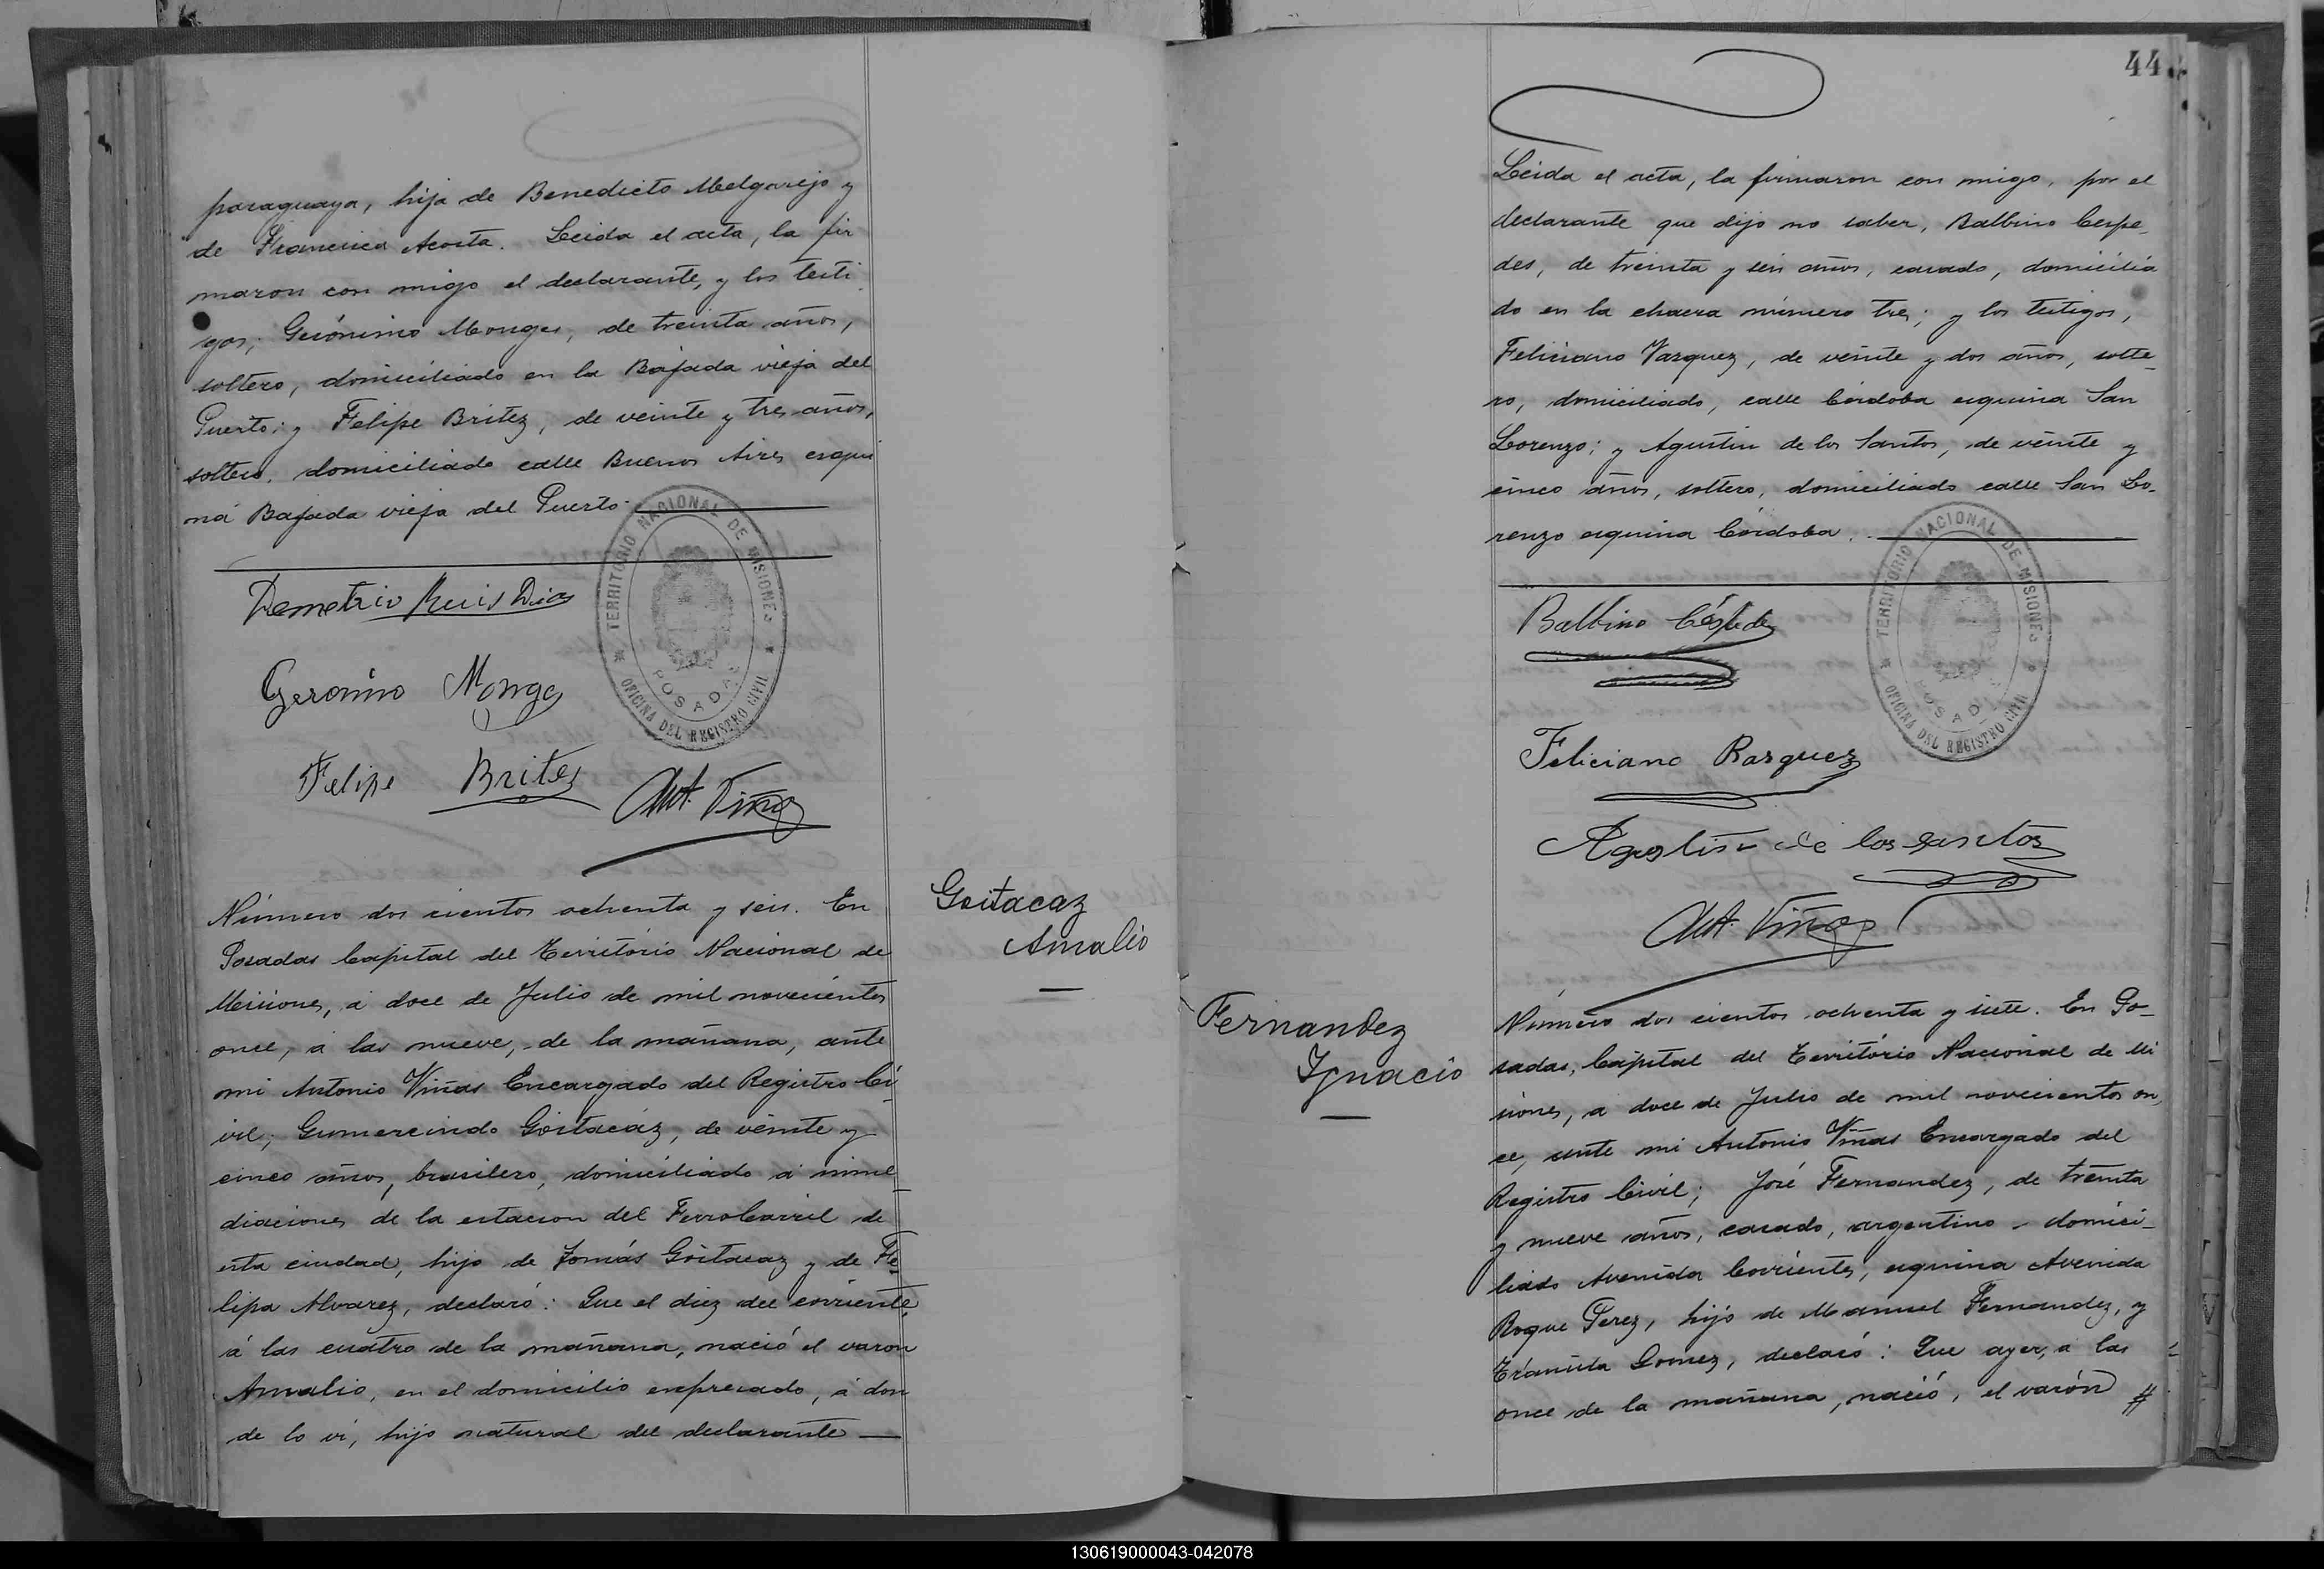 paraguaya, hija de Benedicto Melgarejo y
de Francisca Acosta. Leida el acta, la fir
maron con migo el declarante, y los testi
gos; Gerónimo Monges, de treinta años,
soltero, domiciliado en la Bajada vieja del
Puerto; y Felipe Britez, de veinte y tres años,
soltero, domiciliado calle Buenos Aires esqui
na Bajada vieja del Puerto
TERRITORIO NACIONAL DE MISIONES
POSADAS
OFICINA DEL REGISTRO CIVIL
Demetrio Ruis Dias
Geronimo Monges
Felipe Brites
Ant. Viñas
Número dos cientos ochenta y seis. En
Posadas Capital del Território Nacional de
Misiones, á doce de Julio de mil novecientos
once, á las nueve, de la mañana, ante
mi Antonio Viñas Encargado del Registro Ci
vil; Gumercindo Goitacáz, de veinte y
cinco años, brasilero, domiciliado á inme
diaciones de la estacion del Ferro Carril de
esta ciudad, hijo de Tomás Goitacaz y de Fe
lipa Alvarez, declaró: Que el diez del corriente,
á las cuatro de la mañana, nació el varon
Amalio, en el domicilio expresado, á don
de lo vi, hijo natural del declarante
Goitacaz
Amalio
44
Leida el acta, la firmaron con migo, por el
declarante que dijo no saber, Balbino Cespe
des, de treinta y seis años, casado, domicilia
do en la chacra número tres; y los testigos,
Feliciano Vasquez, de veinte y dos años, solte-
ro, domiciliado, calle Córdoba esquina San
Lorenzo; y Agustin de los Santos, de veinte y
cinco años, soltero, domiciliado calle San Lo-
renzo esquina Córdoba.
TERRITORIO NACIONAL DE MISIONES
POSADAS
OFICINA DEL REGISTRO CIVIL
Balbino Céspedes
Feliciano Basquez
Agustin de los santos
Ant. Viñas
Fernandez
Ignacio
Número dos cientos ochenta y siete. En Po-
sadas, Capital del Território Nacional de Mi
siones, a doce de Julio de mil novecientos on,
ce, ante mi Antonio Viñas Encargado del
Registro Civil; José Fernandez, de treinta
y nueve años, casado, argentino - domici-
liado Avenida Corrientes, esquina Avenida
Roque Perez, hijo de Manuel Fernandez, y
Gomez, declaró: Que ayer, a las
once de la mañana, nació, el varón #
130619000043-042078